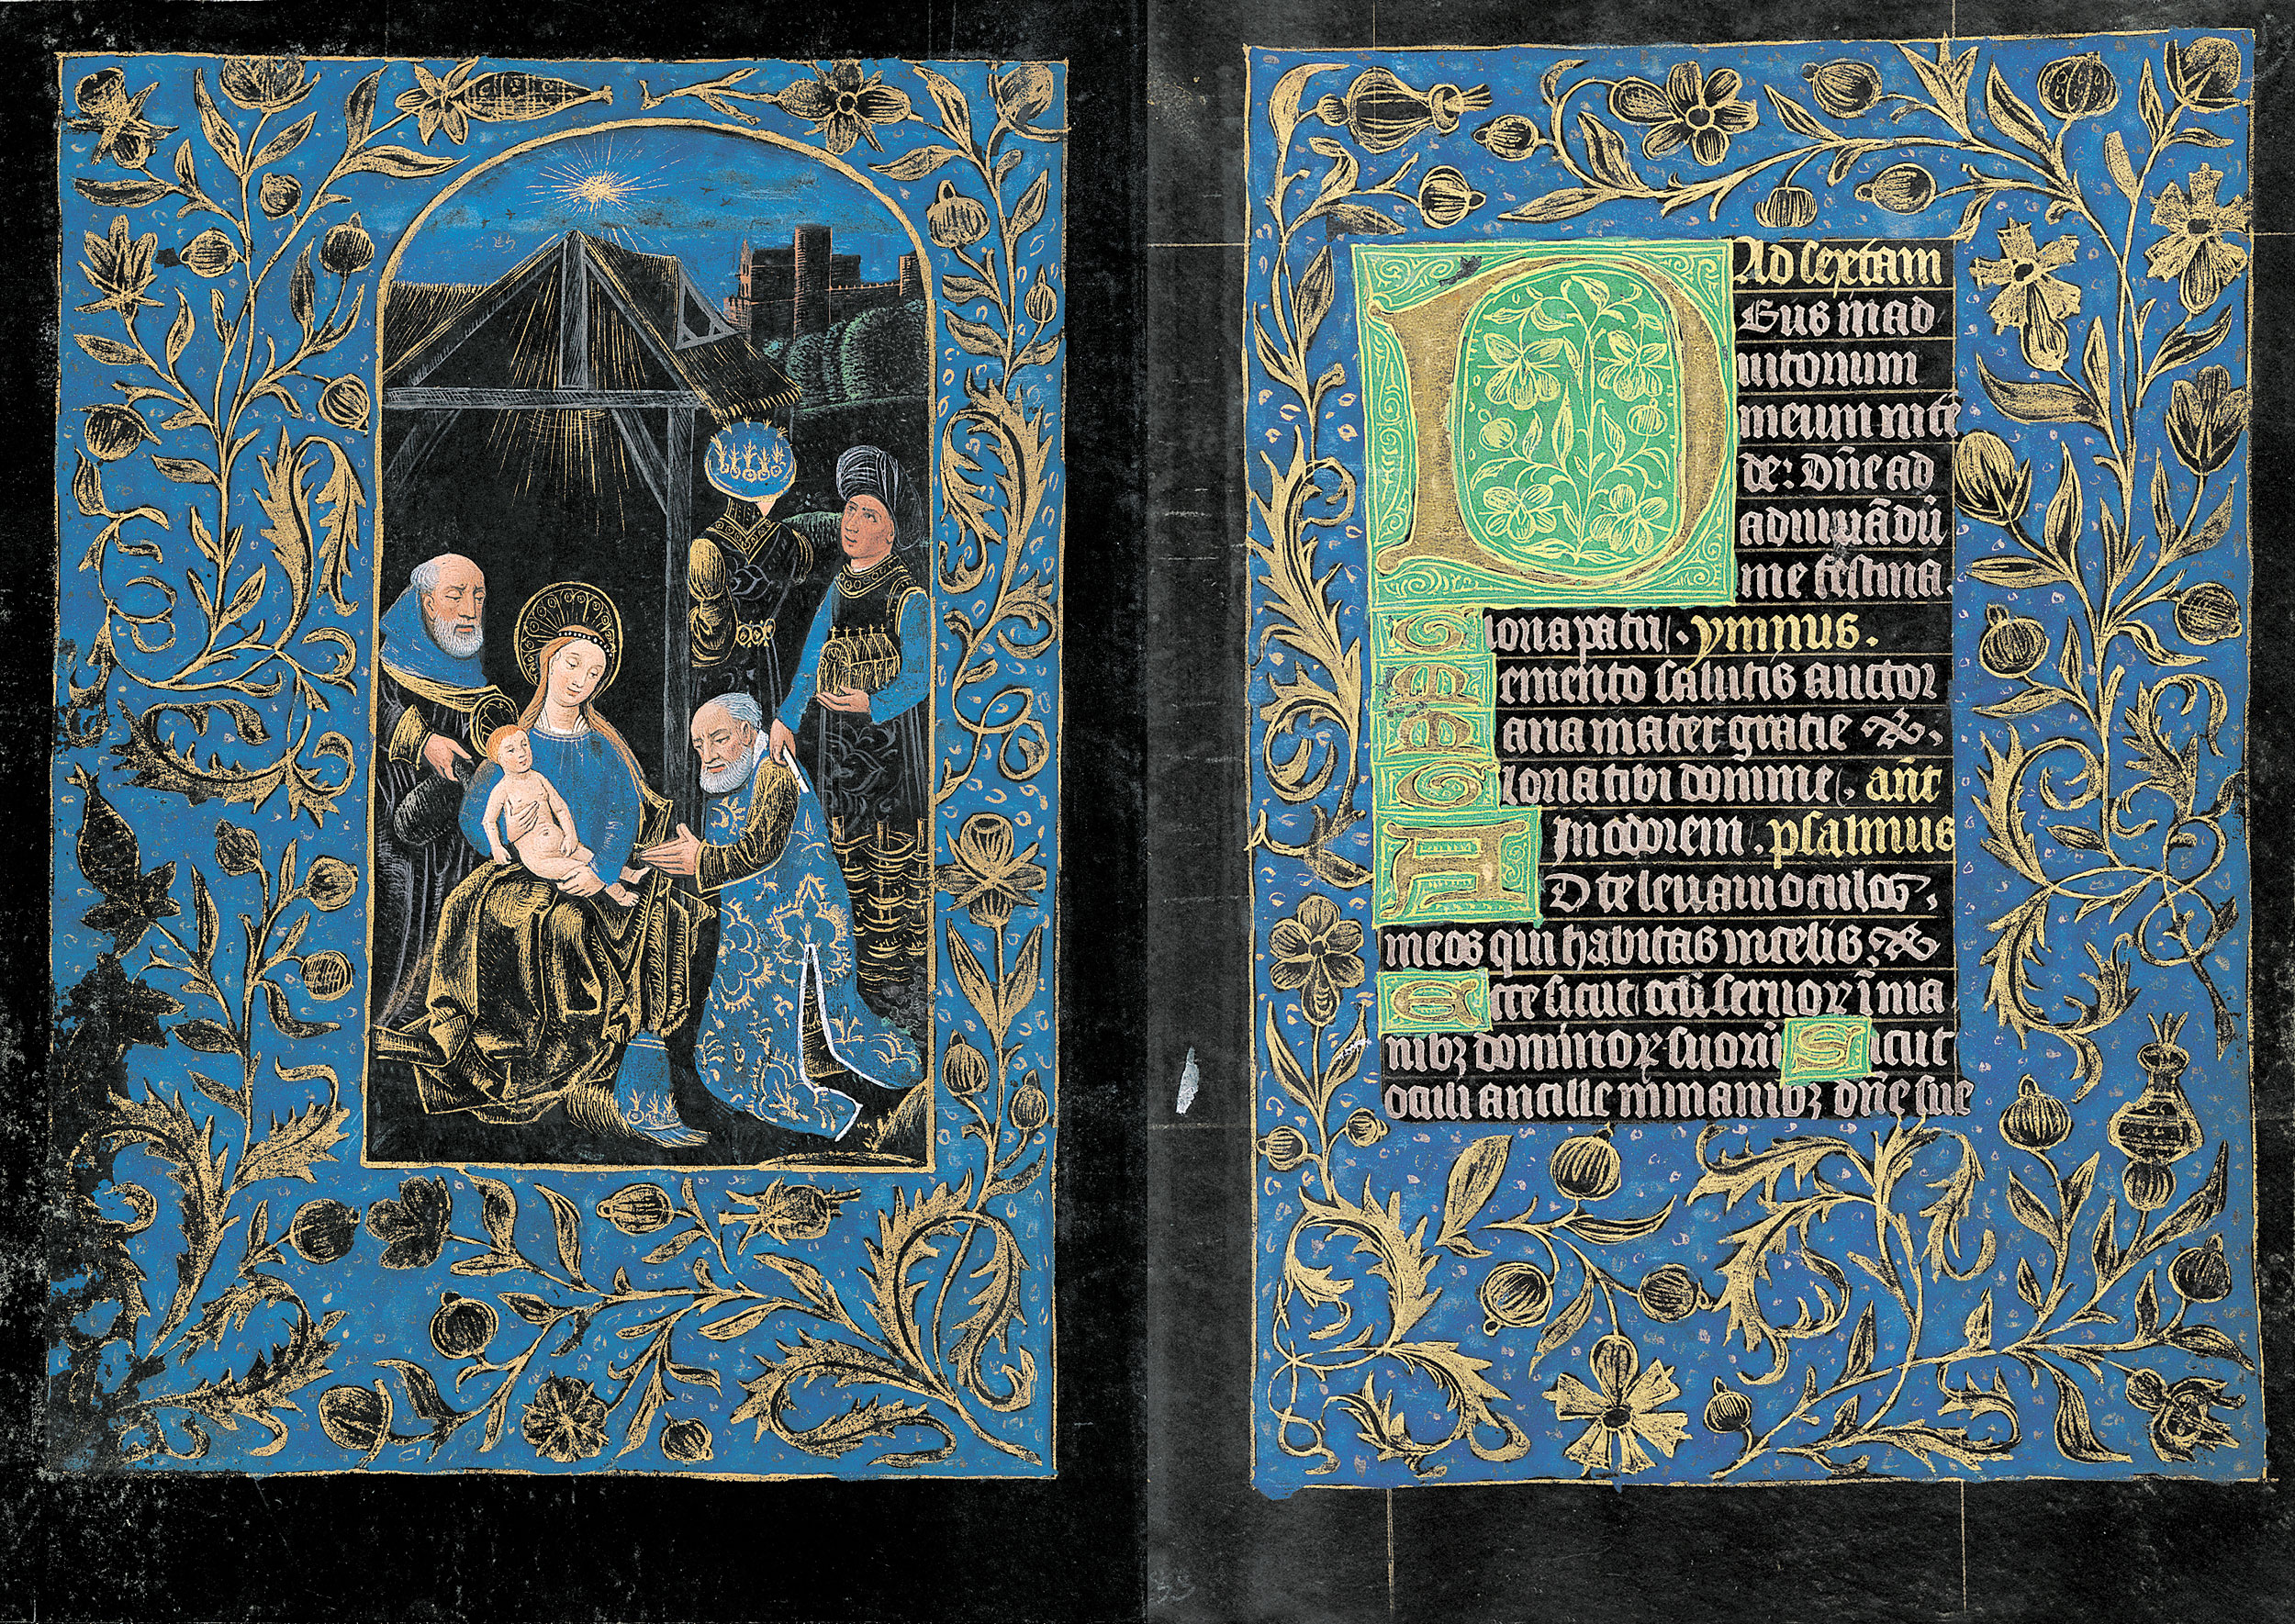 Ad sextam
Deus in ad
iutorium
meum inte
de: Dn̄e ad
adiuuādū
me festina.
Gloria patri. ymnus.
Memento salutis auctor
Maria mater gratie &.
Gloria tibi domine. añt
In odorem. psalmus
AD te leuaui oculos.
meos qui habitas in celis. &
Ecce sicut oculi seruoꝝ ī ma
nibꝫ dominoꝝ suorū Sicut
oculi ancille in manibꝫ dn̄e sue